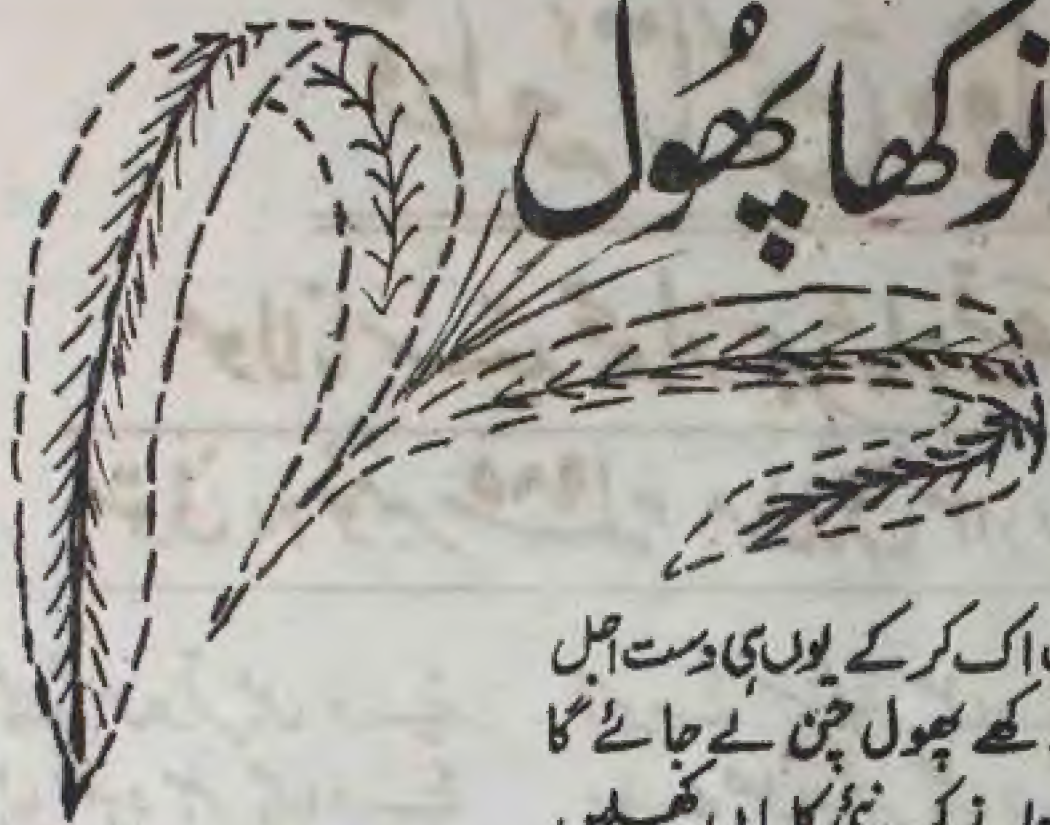 نوکھا پھُول
اک کر کے یوں ہی دست اجل
کھے پھول چن لے جائے گا